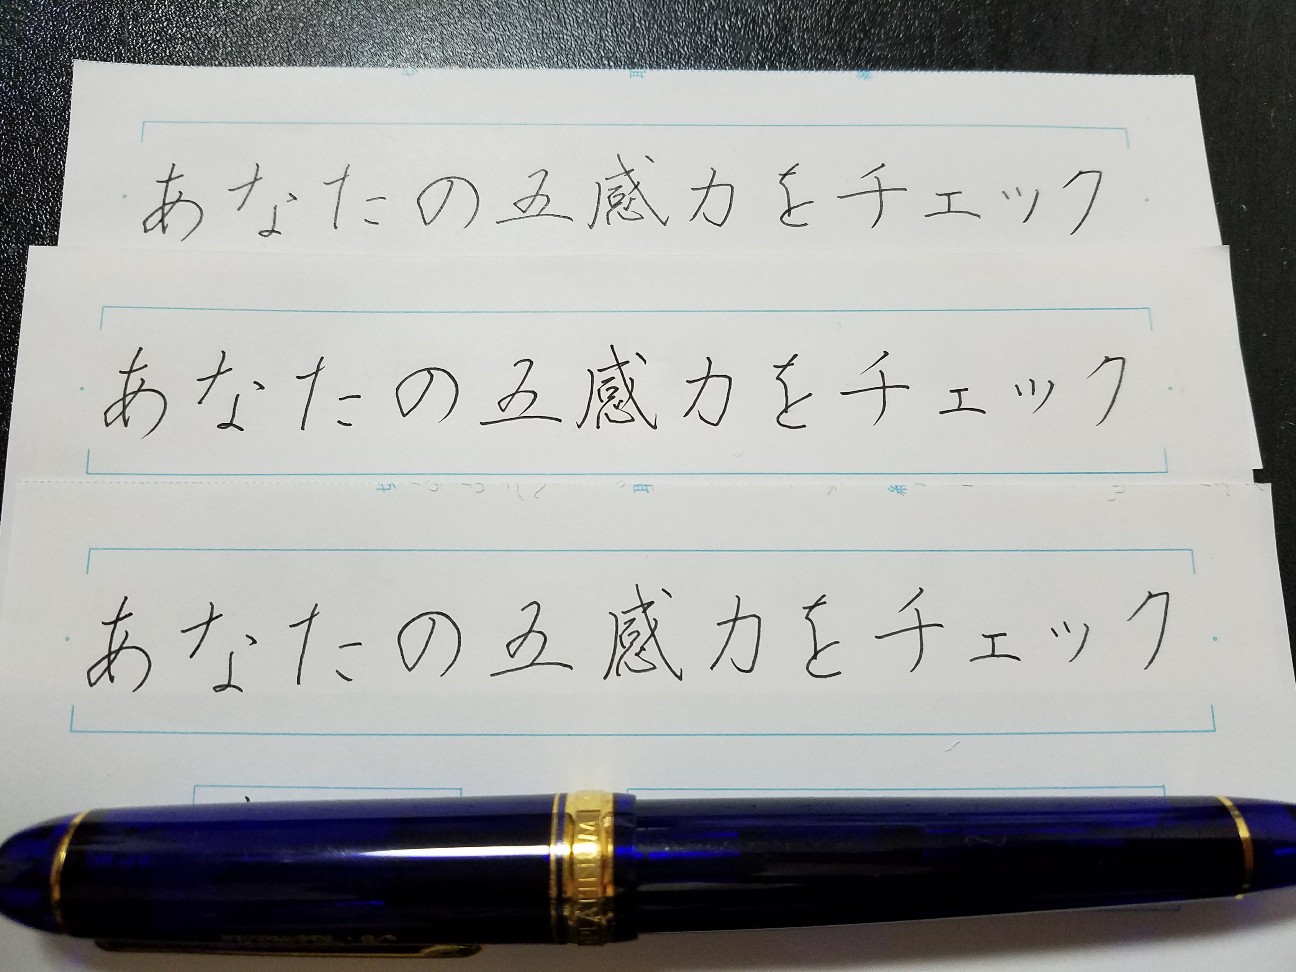 あなたの五感力をチェック
あなたの五感力をチェック
あなたの五感力をチェック
PLATINUM